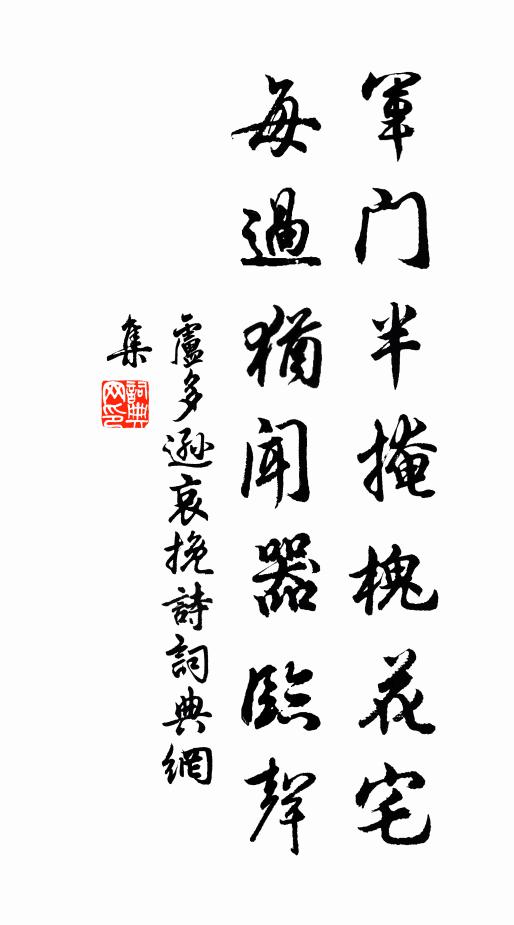 軍门半掩槐花宅
每過猶闻器臨聲
盧多遜哀挽詩詞典網
集
詞典
网印